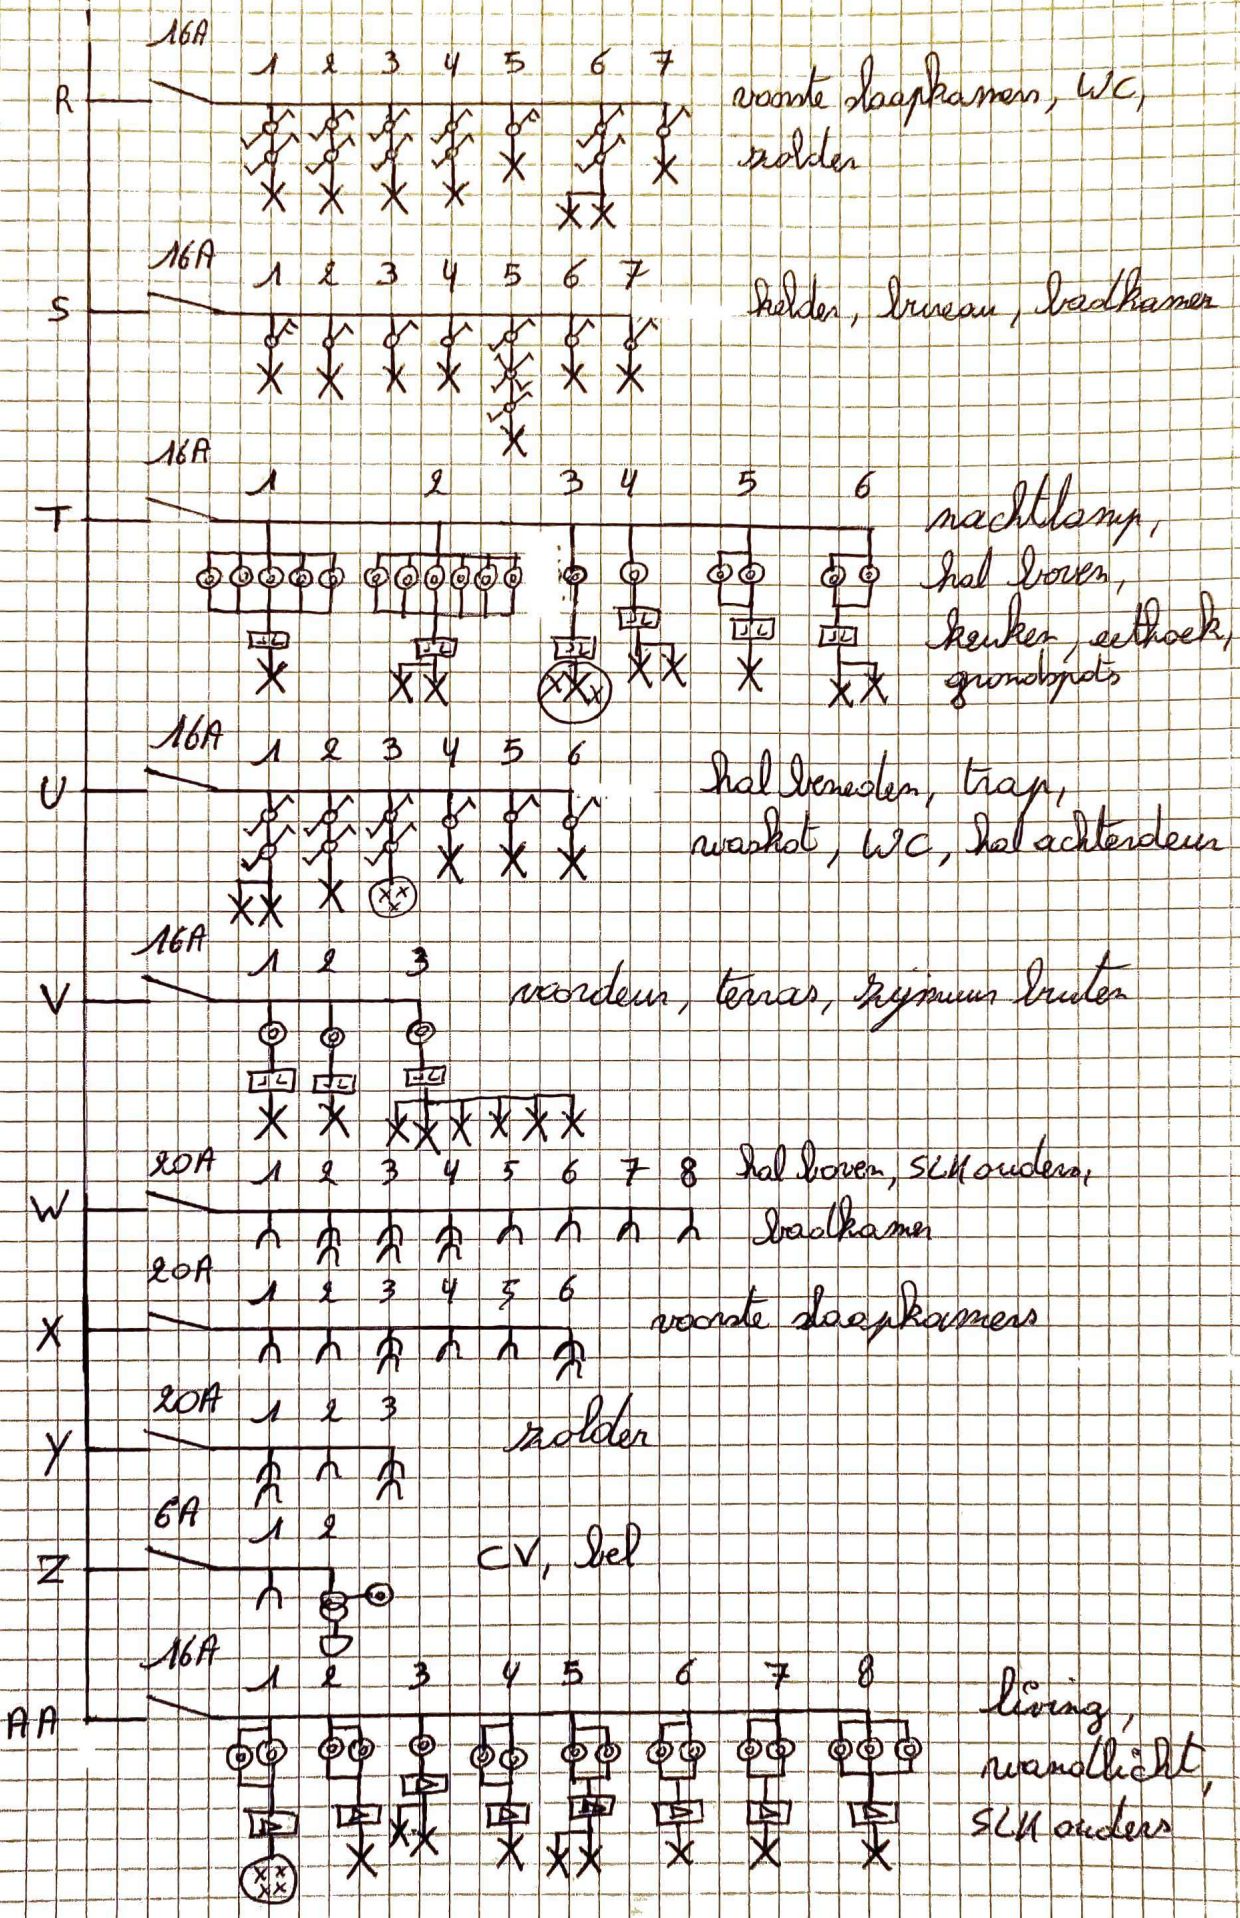 16A
1 2 3 4 5 6 7
R
voorste slaapkamers, WC,
zolder
16A
1 2 3 4 5 6 7
S
kelder, bureau, badkamer
16A
1 2 3 4 5 6
T
nachtlamp,
hal boven,
keuken, eethoek,
grondspots
16A
1 2 3 4 5 6
U
hal beneden, trap,
waskot, WC, hal achterdeur
16A
1 2 3
V
voordeur, terras, zijmuur buiten
20A
1 2 3 4 5 6 7 8
hal boven, SLK ouders,
W
badkamer
20A
1 2 3 4 5 6
X
voorste slaapkamers
20A
1 2 3
Y
zolder
6A
1 2
Z
CV, bel
16A
1 2 3 4 5 6 7 8
AA
living,
wandlicht,
SLK ouders